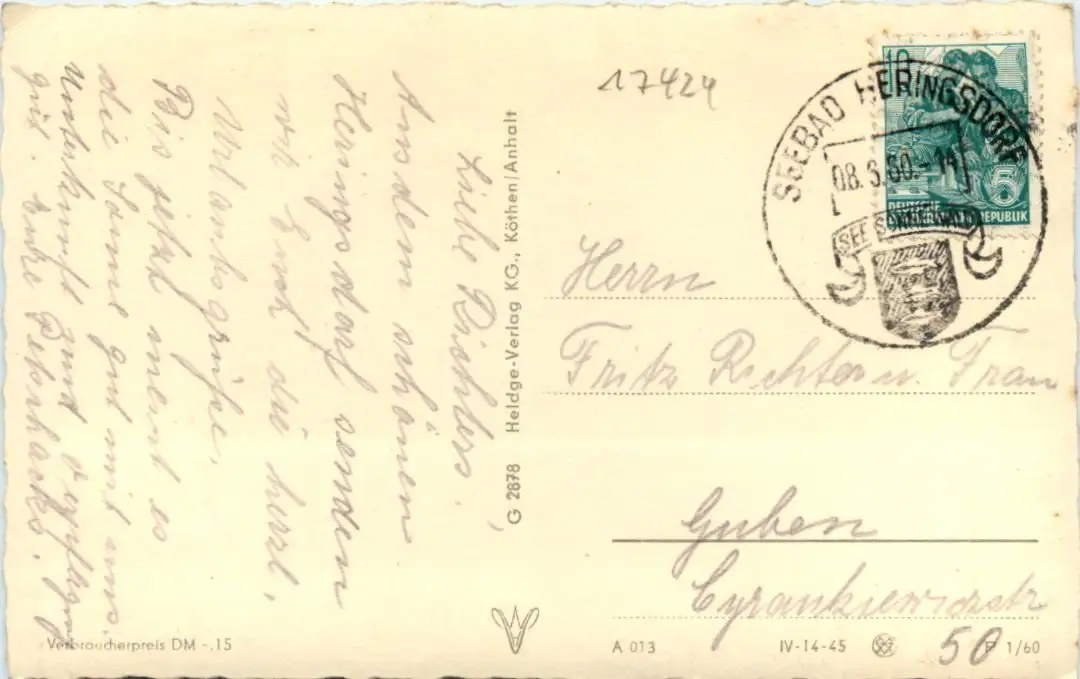 Liebe Richters!
Aus dem schönen
Heringsdorf senden
wir Euch die herzl.
Urlaubsgrüße.
Bis jetzt meint es
die Sonne gut mit uns.
Unterkunft und Verpflegung
gut. Eure Petschacks.
G 2878 Heldge-Verlag KG., Köthen/Anhalt
17424
10
5
DEUTSCHE
DEMOKRATISCHE REPUBLIK
SEEBAD HERINGSDORF
08.6.60.-11
SEE
Herrn
Fritz Richter u. Frau
Guben
Cyrankiewiczstr
50
Verbraucherpreis DM -.15
A 013
IV-14-45
P 1/60